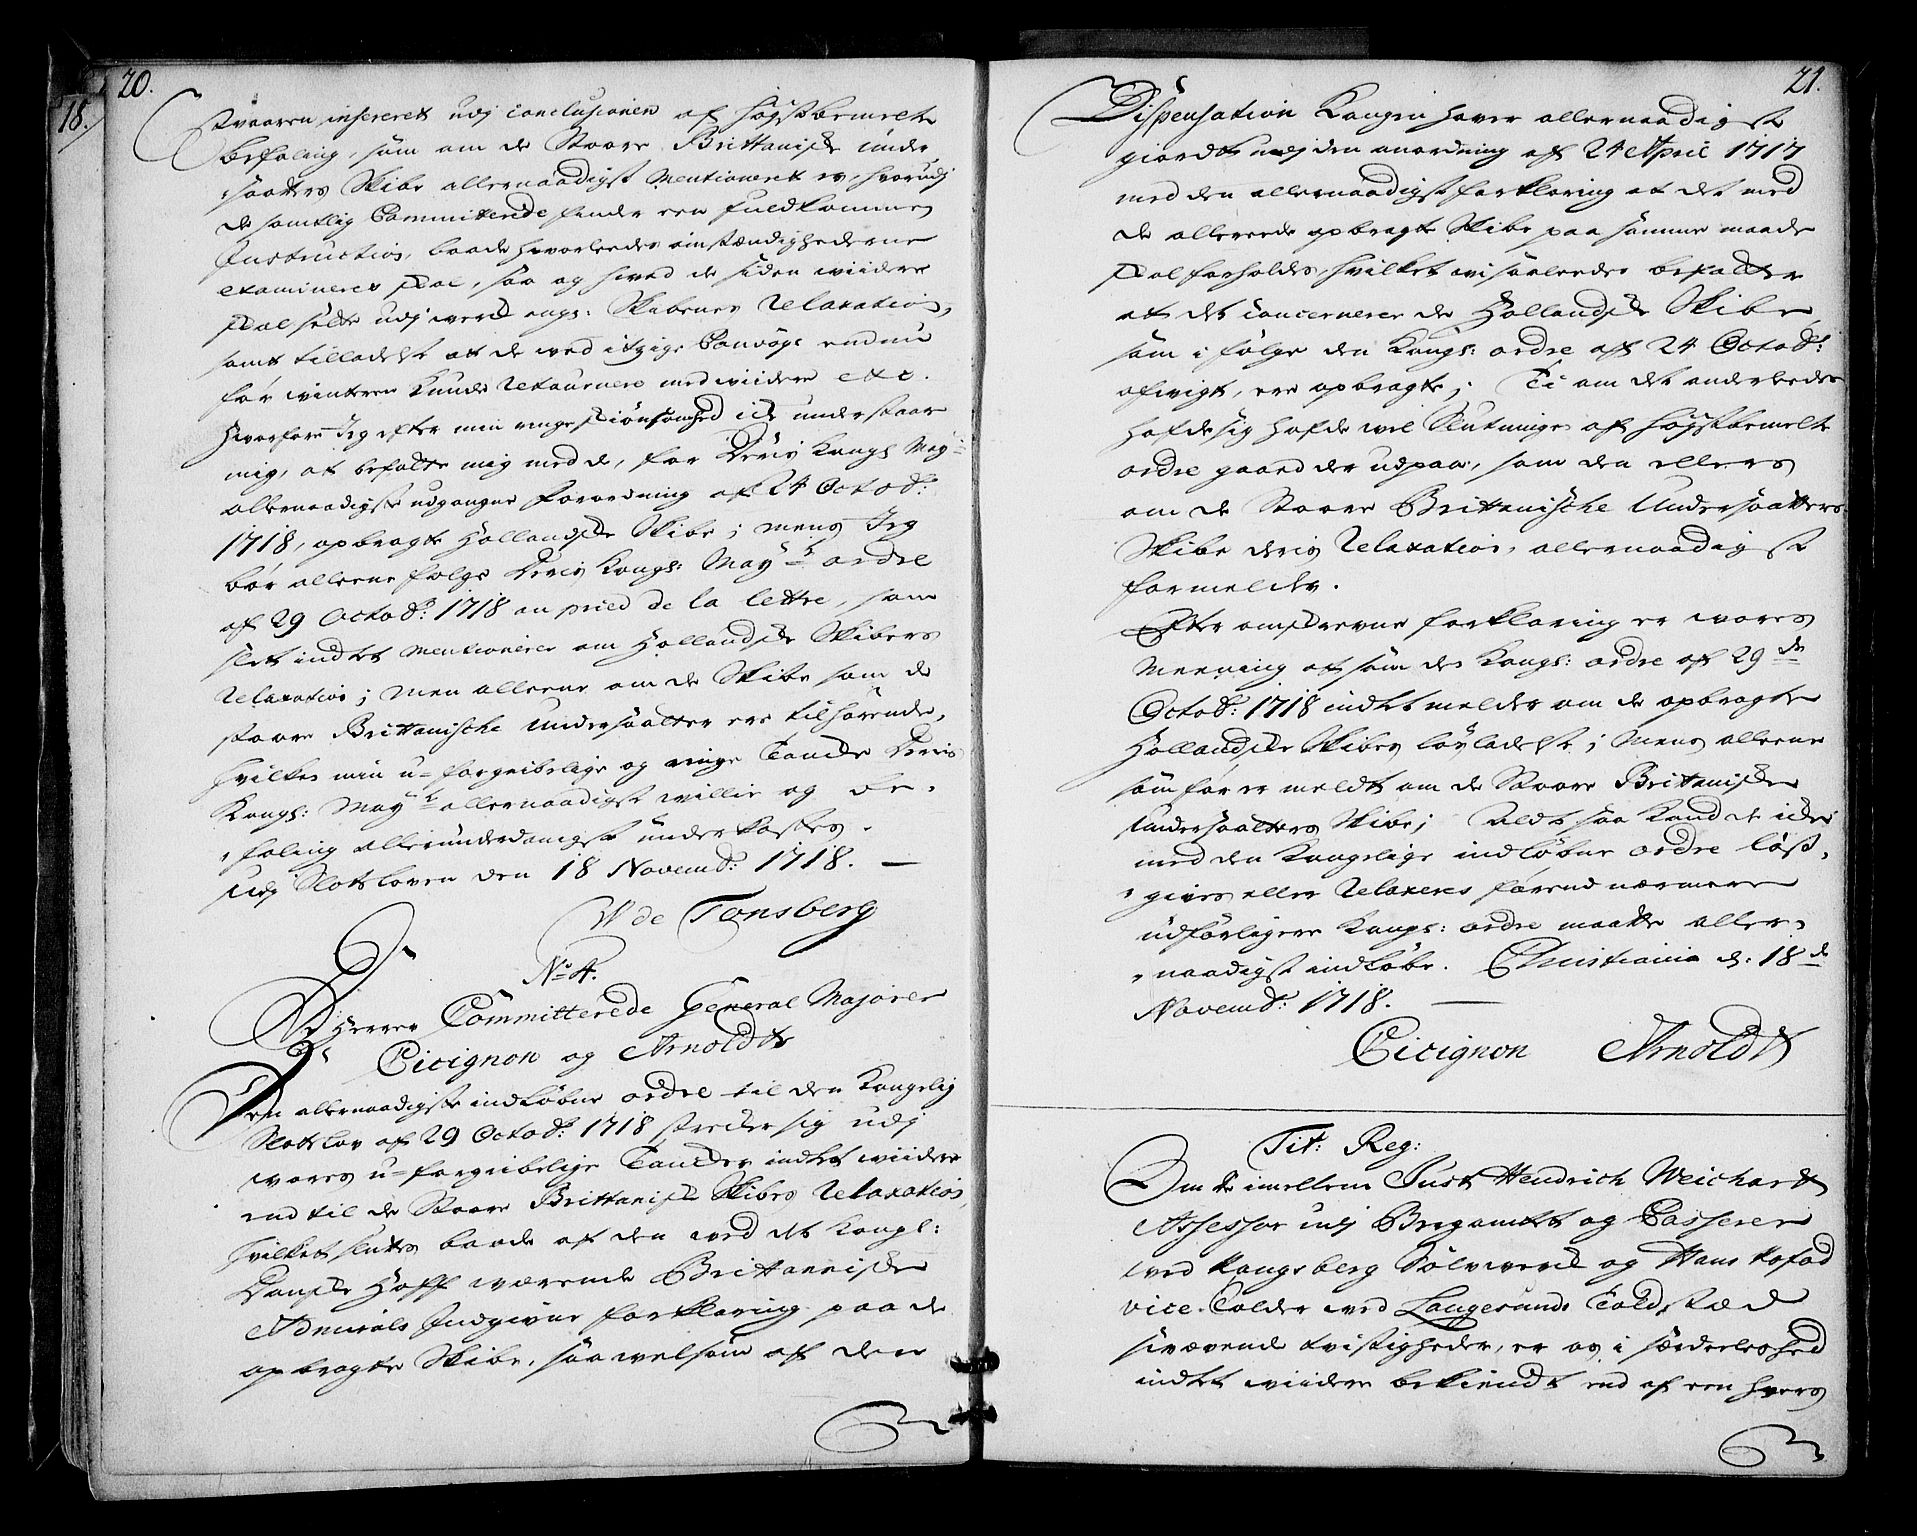 20.
18.
svaaren insereret udj conclusionen af høystbemelte
befaling, som om de Stoore Brittaniske under
saatters Skibe allernaadigst mentioneret er, hvorudj
de samtlig Committerede finder een fuldkommen
Instruction, baade hvorledes omstændighederne
examineres skal, saa og hved de siden viidere
skal holde udj werck angl: Skibenes Relaxation,
samt tilladelse at de ved itzige Convoye endnu
før winteren kunde Retournere med viidere etc.
Hvorfore Jeg efter min ringe skiønsomhed icke understaar
mig, at befatte mig med de, for Deris Kongl May:
allernaadigste udgangne forordning af 24 Octobr:
1718, opbragte Hollandske Skibe; mens Jeg
bør alleene følge Deris Kongl: Mayts ordre
af 29 Octobr: 1718 au pried de la lettre, som
slet indtet mentionerer om Hollandske Skibers
Relaxation; men alleene om de Skibe som de
stoore Brittanische Undersaatter ere tilhørende,
hvilket min u-forgribelige og ringe Tancke Deris
Kongl: Mayts allernaadigst willie og be-
faling allerunderdanigst underkastes.
Udj Slotsloven den 18 Novembr: 1718. —
W de Tonsberg
No 4.
De Herrer Committerede General Majorer
Cicignon og Arnoldts
Den allernaadigste indløbne ordre til den Kongelig
Slotslov af 29 Octobr: 1718 strecker sig udj
wores u-forgribelige Tancker indtet viidere
end til de Stoore Brittanisk Skibes Relaxation,
hvilket sluttes baade af den ved det Kongl:
Danske Hoff werende Brittanniske
Admirals Indgivne forklaring paa de
opbragte Skibe, saavelsom af den
21.
Dispensation Kongen haver allernaadigst
giordt udj den anordning af 24 April 1717
med den allernaadigst forklaring at det med
de allereede opbragte Skibe paa samme maade
skal forholdes, hvilket vi saaledes befatter
at det concernerer de Hollandske Skibe,
som i følge den Kongl: ordre af 24 Octobr:
afvigt, ere opbragte; Ti om det anderledes
hafde sig hafde vel Slutningen af høystbemelte
ordre gaaed der udpaa, som den ellers
om de Stoore Brittanische Undersaatters
Skibe deris Relaxation, allernaadigst
formelder.
Efter omskrevne forklaring er wores
Meening at som den Kongl: ordre af 29 de
Octobr: 1718 indtet melder om de opbragte
Hollandske Skibes løsladelse; Mens alleene
som før er meldt om de Stoore Brittaniske
Undersaatters Skibe; Altsaa kand de icke
med den Kongelige indløbne ordre løst,
gives eller Relaxeres førend nærmere
udførligere Kongl: ordre maatte aller-
naadigst indløbe. Christiania d: 18 de
Novembr: 1718. —
Cicignon Arnoldt
Tit: Reg:
Om de imellem Just Hendrich Weichardt
Assessor udj Bergamtet og Casserer
ved Kongsberg Sølvverck og Hans Kofod
vice-Tolder ved Langesunds Toldstæd
sværende tvistigheder, er os i særdeleshed
indtet viidere bekiendt end af een hvers